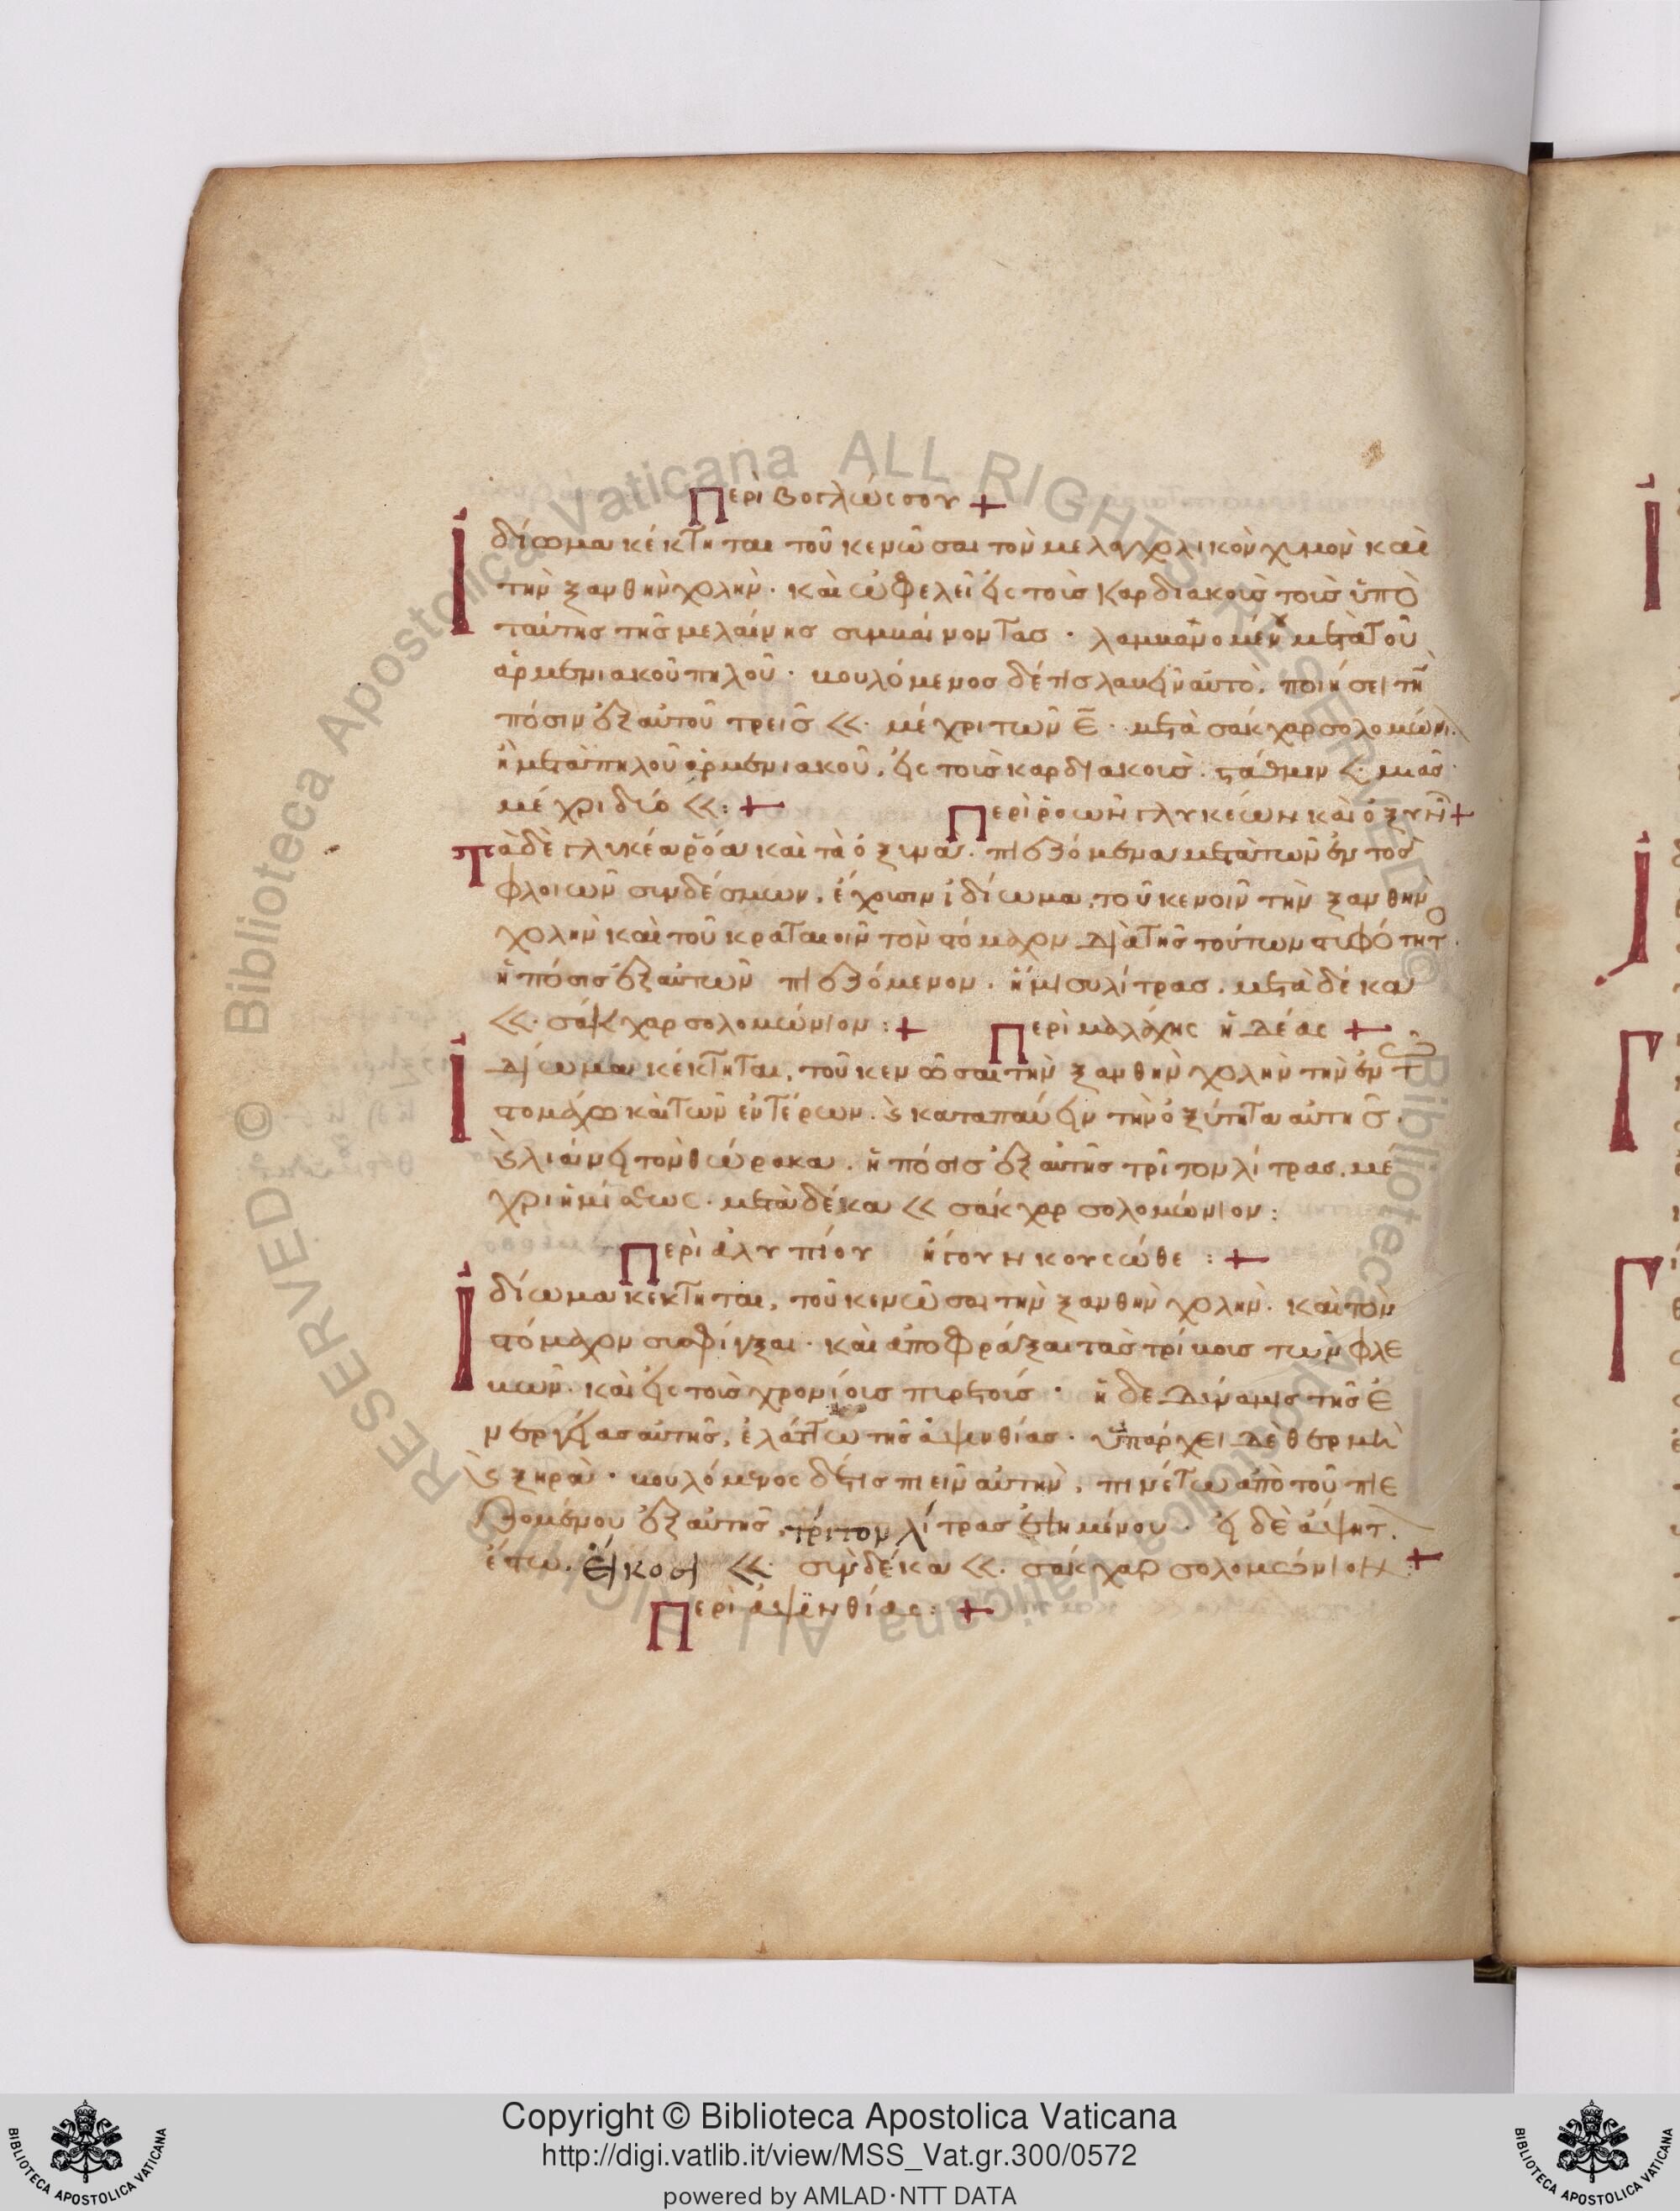 Περὶ βογλώσσου +
Ἰδίωμα κέκτηται τοῦ κενῶσαι τὸν μελαγχολικὸν χυμὸν καὶ
τὴν ξανθὴν χολήν · καὶ ὠφελεῖ εἰς τοῖς καρδιακοῖς τοῖς ὑπὸ
ταύτης τῆς μελαίνης συμβαίνοντας · λαμβανομένη μετὰ τοῦ
ἀρμενιακοῦ πηλοῦ · βουλόμενος δέ τις λαβεῖν αὐτὸ, ποιήσει τὴν
πόσιν ἐξ αὐτοῦ τρεῖς << · μέχρι τῶν ε · μετὰ σάκχαρ σολομών
ἢ μετὰ πηλοῦ ἀρμενιακοῦ, εἰς τοῖς καρδιακοῖς. < · μιᾶς ·
μέχρι δύο << : + Περὶ ῥοῶν γλυκέων καὶ ὀξυν +
Τὰ δὲ γλυκέα ῥόα καὶ τὰ ὄξινα. πιεζόμενα μετὰ τῶν ἐντὸς
φλοιῶν συνδέσμων, ἔχουσιν ἰδίωμα, τοῦ κενοῦν τὴν ξανθὴν
χολὴν καὶ τοῦ κραταιοῦν τὸν στόμαχον διὰ τῆς τούτων στυφότητ ·
ἡ πόσις ἐξ αὐτῶν πιεζόμενον · ἥμισυ λίτρας. μετὰ δέκα
<< · σάκχαρ σολομώνιον : + Περὶ μαλάχης ἡ δέας +
Ἰδίωμα κέκτηται, τοῦ κενῶσαι τὴν ξανθὴν χολὴν τὴν ἐν τ
στομάχω καὶ τῶν ἐντέρων. ϗ καταπαύειν τὴν ὀξύτητα αὐτῆς ·
ϗ λιαίνει τὸν θώρακα. ἡ πόσις ἐξ αὐτῆς τρίτον λίτρας. μέ
χρι ἡμίσεως · μετὰ δέκα << σάκχαρ σολομώνιον :
Περὶ ἀλυπίου ἤγουν κουσώθε : +
Ἰδίωμα κέκτηται, τοῦ κενῶσαι τὴν ξανθὴν χολήν · καὶ τὸν
στόμαχον συσφίγξαι · καὶ ἀποφράξαι τὰς τρίβους τῶν φλε
βῶν · καὶ εἰς τοῖς χρονίοις πυρετοῖς · ἡ δὲ δύναμις τῆς ἐ
νεργείας αὐτῆς, ἐλάττω τῆς ἀψινθίας · ὑπάρχει δὲ θερμὴ
ϗ ξηρά · βουλόμενος δέ τις πιεῖν αὐτὴν, πινέτω ἀπὸ τοῦ πιε
ζομένου ἐξ αὐτῆς, τρίτον λίτρας · εἰ δὲ ἀψητ ·
ἔστω. εἴκοσι << σὺν δέκα << · σάκχαρ σολομώνιον : +
Περὶ ἀψινθίας : +
Copyright © Biblioteca Apostolica Vaticana
http://digi.vatlib.it/view/MSS_Vat.gr.300/0572
powered by AMLAD·NTT DATA